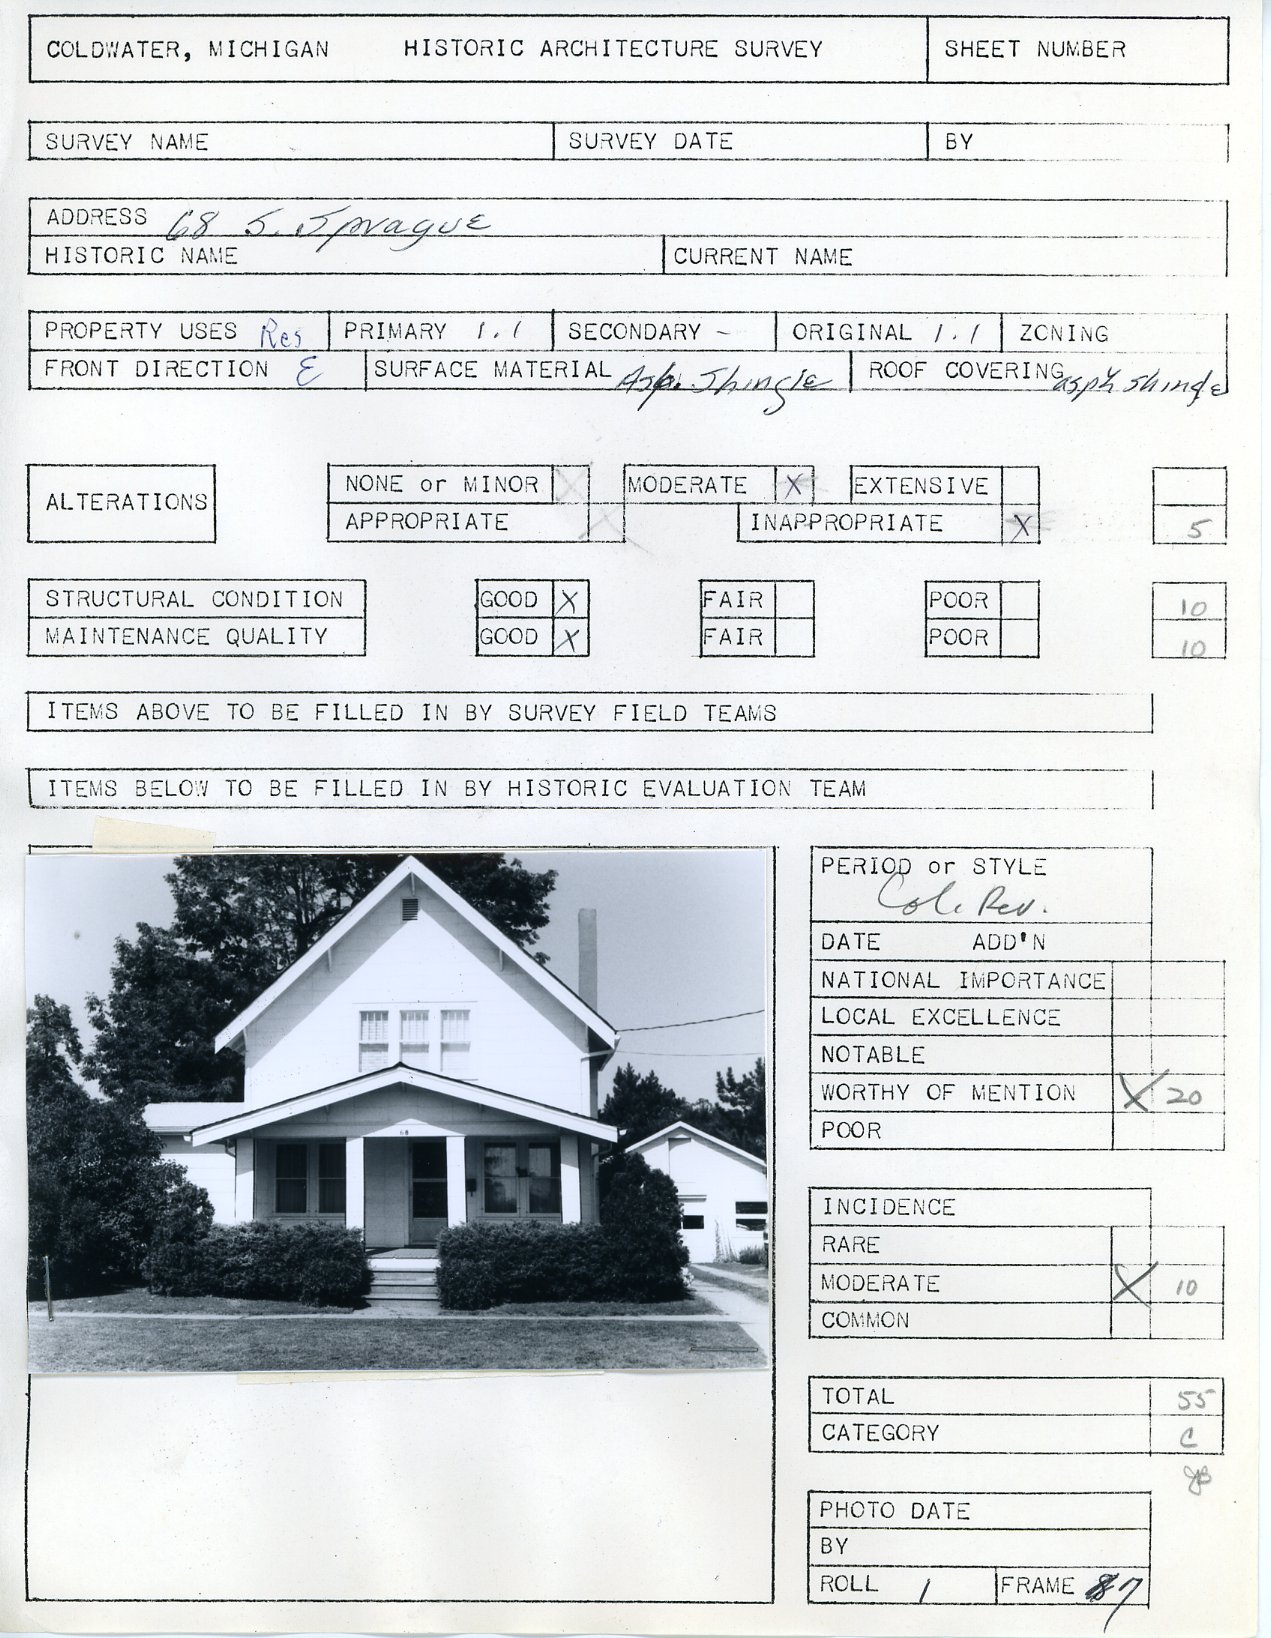 COLDWATER, MICHIGAN HISTORIC ARCHITECTURE SURVEY SHEET NUMBER
SURVEY NAME SURVEY DATE BY
ADDRESS 68 S. Sprague
HISTORIC NAME CURRENT NAME
PROPERTY USES Res PRIMARY 1.1 SECONDARY - ORIGINAL 1.1 ZONING
FRONT DIRECTION E SURFACE MATERIAL Asb. Shingle ROOF COVERING asph shingle
ALTERATIONS NONE or MINOR X MODERATE X EXTENSIVE
APPROPRIATE X INAPPROPRIATE X 5
STRUCTURAL CONDITION GOOD X FAIR POOR 10
MAINTENANCE QUALITY GOOD X FAIR POOR 10
ITEMS ABOVE TO BE FILLED IN BY SURVEY FIELD TEAMS
ITEMS BELOW TO BE FILLED IN BY HISTORIC EVALUATION TEAM
68
PERIOD or STYLE
Col. Rev.
DATE ADD'N
NATIONAL IMPORTANCE
LOCAL EXCELLENCE
NOTABLE
WORTHY OF MENTION X 20
POOR
INCIDENCE
RARE
MODERATE X 10
COMMON
TOTAL 55
CATEGORY C
PHOTO DATE
BY
ROLL 1 FRAME 7